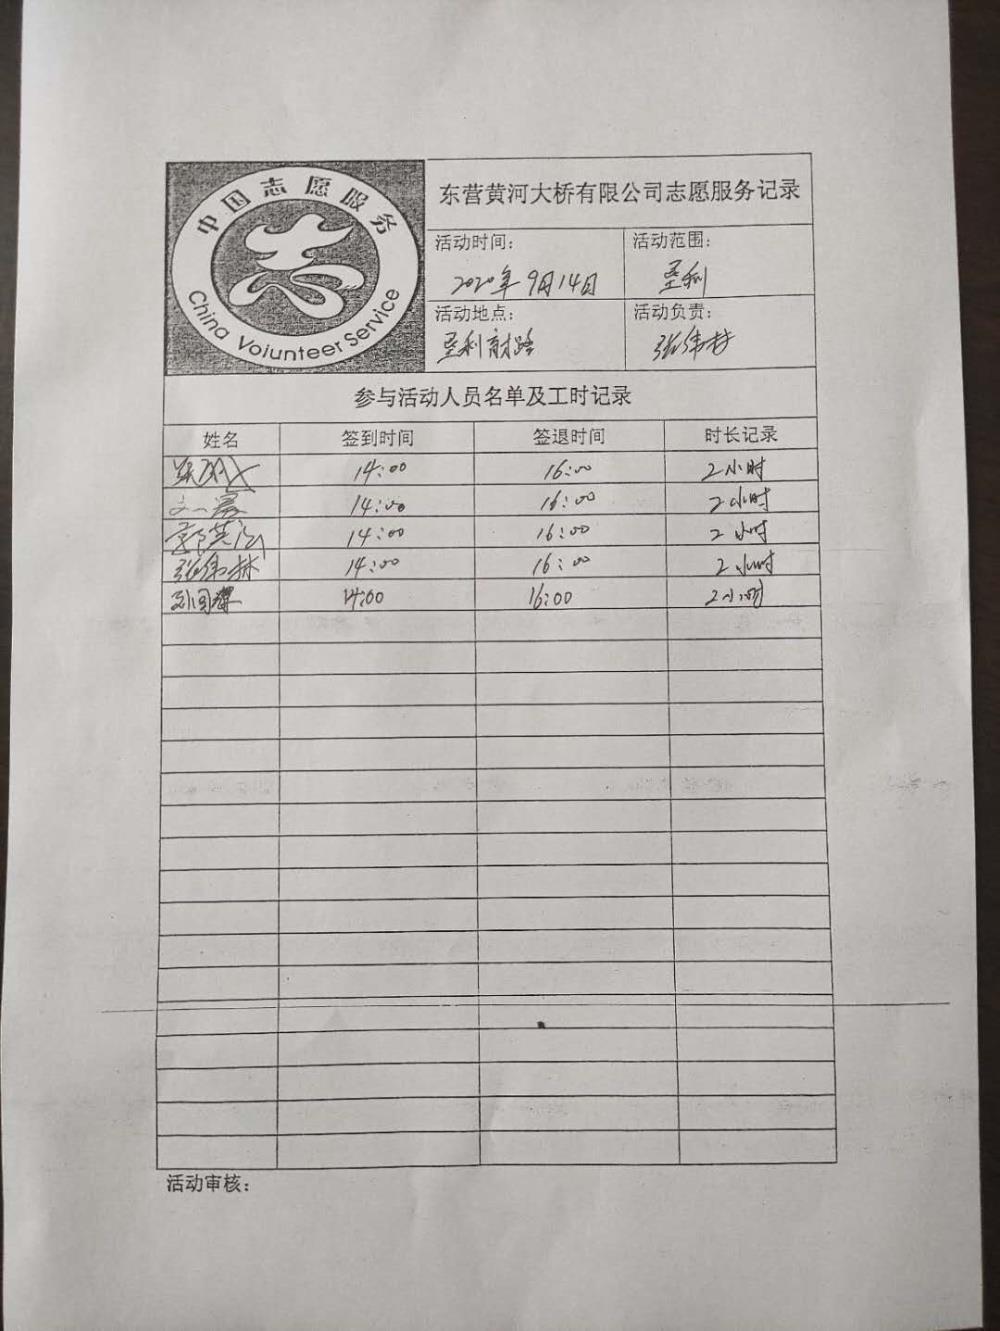 中国志愿服务
China Volunteer Service
东营黄河大桥有限公司志愿服务记录
活动时间： 活动范围：
2020年9月14日 垦利
活动地点： 活动负责：
垦利 路 张伟林
参与活动人员名单及工时记录
姓名 签到时间 签退时间 时长记录
14:00 16:00 2小时
14:00 16:00 2小时
14:00 16:00 2小时
张伟林 14:00 16:00 2小时
14:00 16:00 2小时
活动审核：